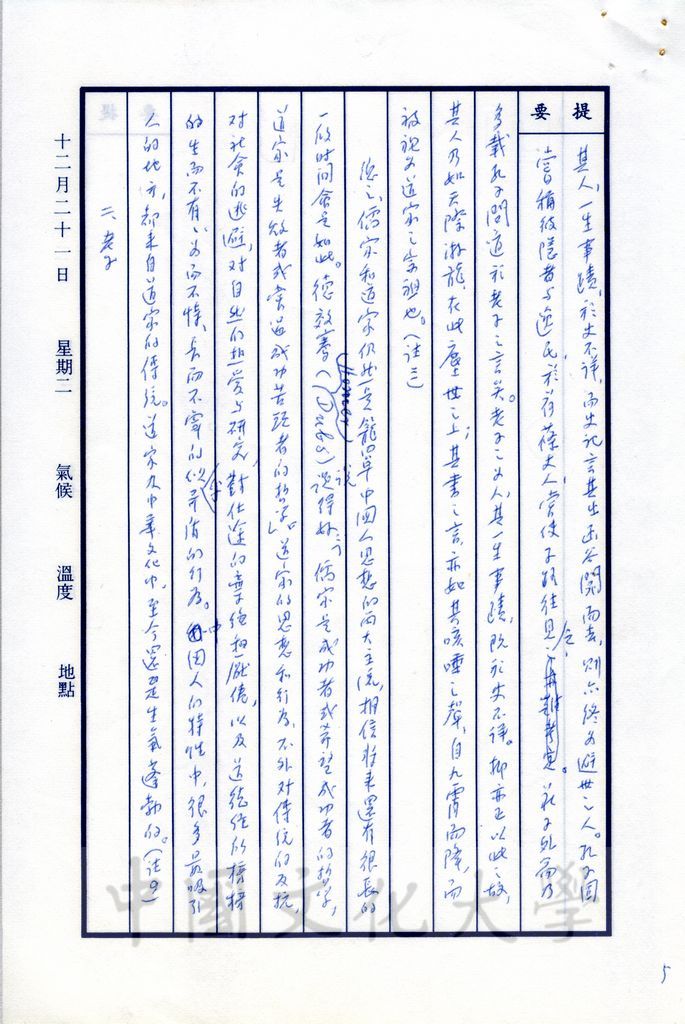 提要
其人,一生事蹟,於史不詳,而史記言其出函谷關而去,則亦終為避世之人。孔子固
嘗稱彼隱者與逸民,於荷蓧丈人,嘗使子路往見之。莊子外篇乃
多載孔子問道於老子之言矣。老子之為人,其一生事蹟,既於史不詳。抑亦正以此之故,
其人乃如天際游龍,在此塵世之上;其書之言,亦如其咳唾之聲,自九霄而降,而
被視為道家之宗祖也。(註三)
總之,儒家和道家仍然是籠罩中國人思想的兩大主流,相信將來還有很長的
一段時間會是如此。德效騫(Homer Dubs)說得好:「儒家是成功者或希望成功者的哲學,
道家是失敗者或嘗過成功苦頭者的哲學。」道家的思想和行為,不外對傳統的反抗,
對社會的逃避,對自然的熱愛與研究,對仕途的棄絕和厭倦,以及道德經所標榜
的生而不有,為而不恃,長而不宰的似乎消的行為。中國人的特性中,很多最吸引
人的地方,都來自道家的傳統。道家及中華文化中,至今還是生氣蓬勃的。(註四)
二、老子
十二月二十一日 星期二 氣候 溫度 地點
5
中國文化大學